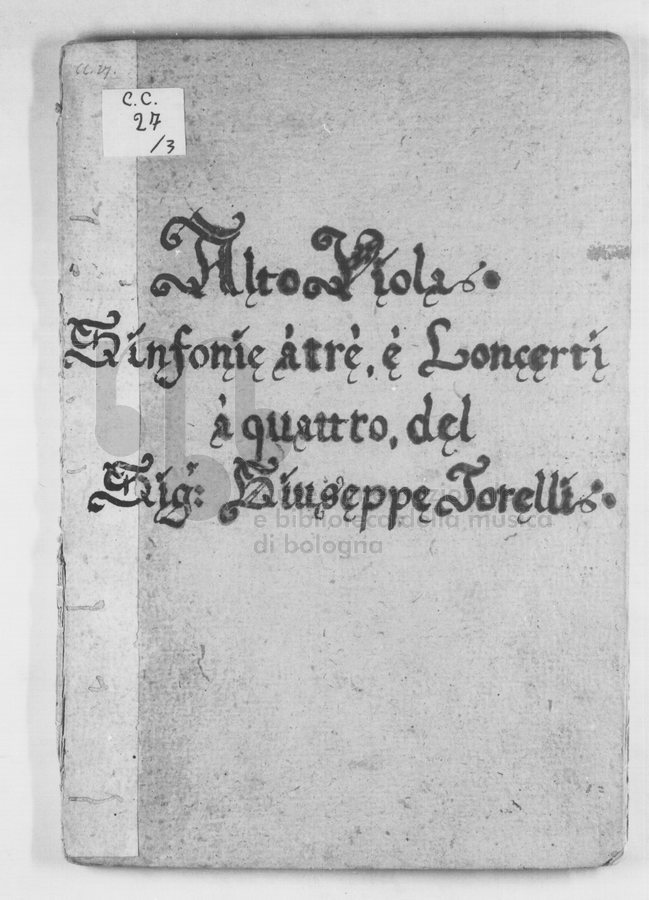 CC. 27.
C.C.
27
/3
Alto Viola.
Sinfonie à trè, è Concerti
à quattro, del
Sig: Giuseppe Torelli.
e biblioteca della musica
di bologna